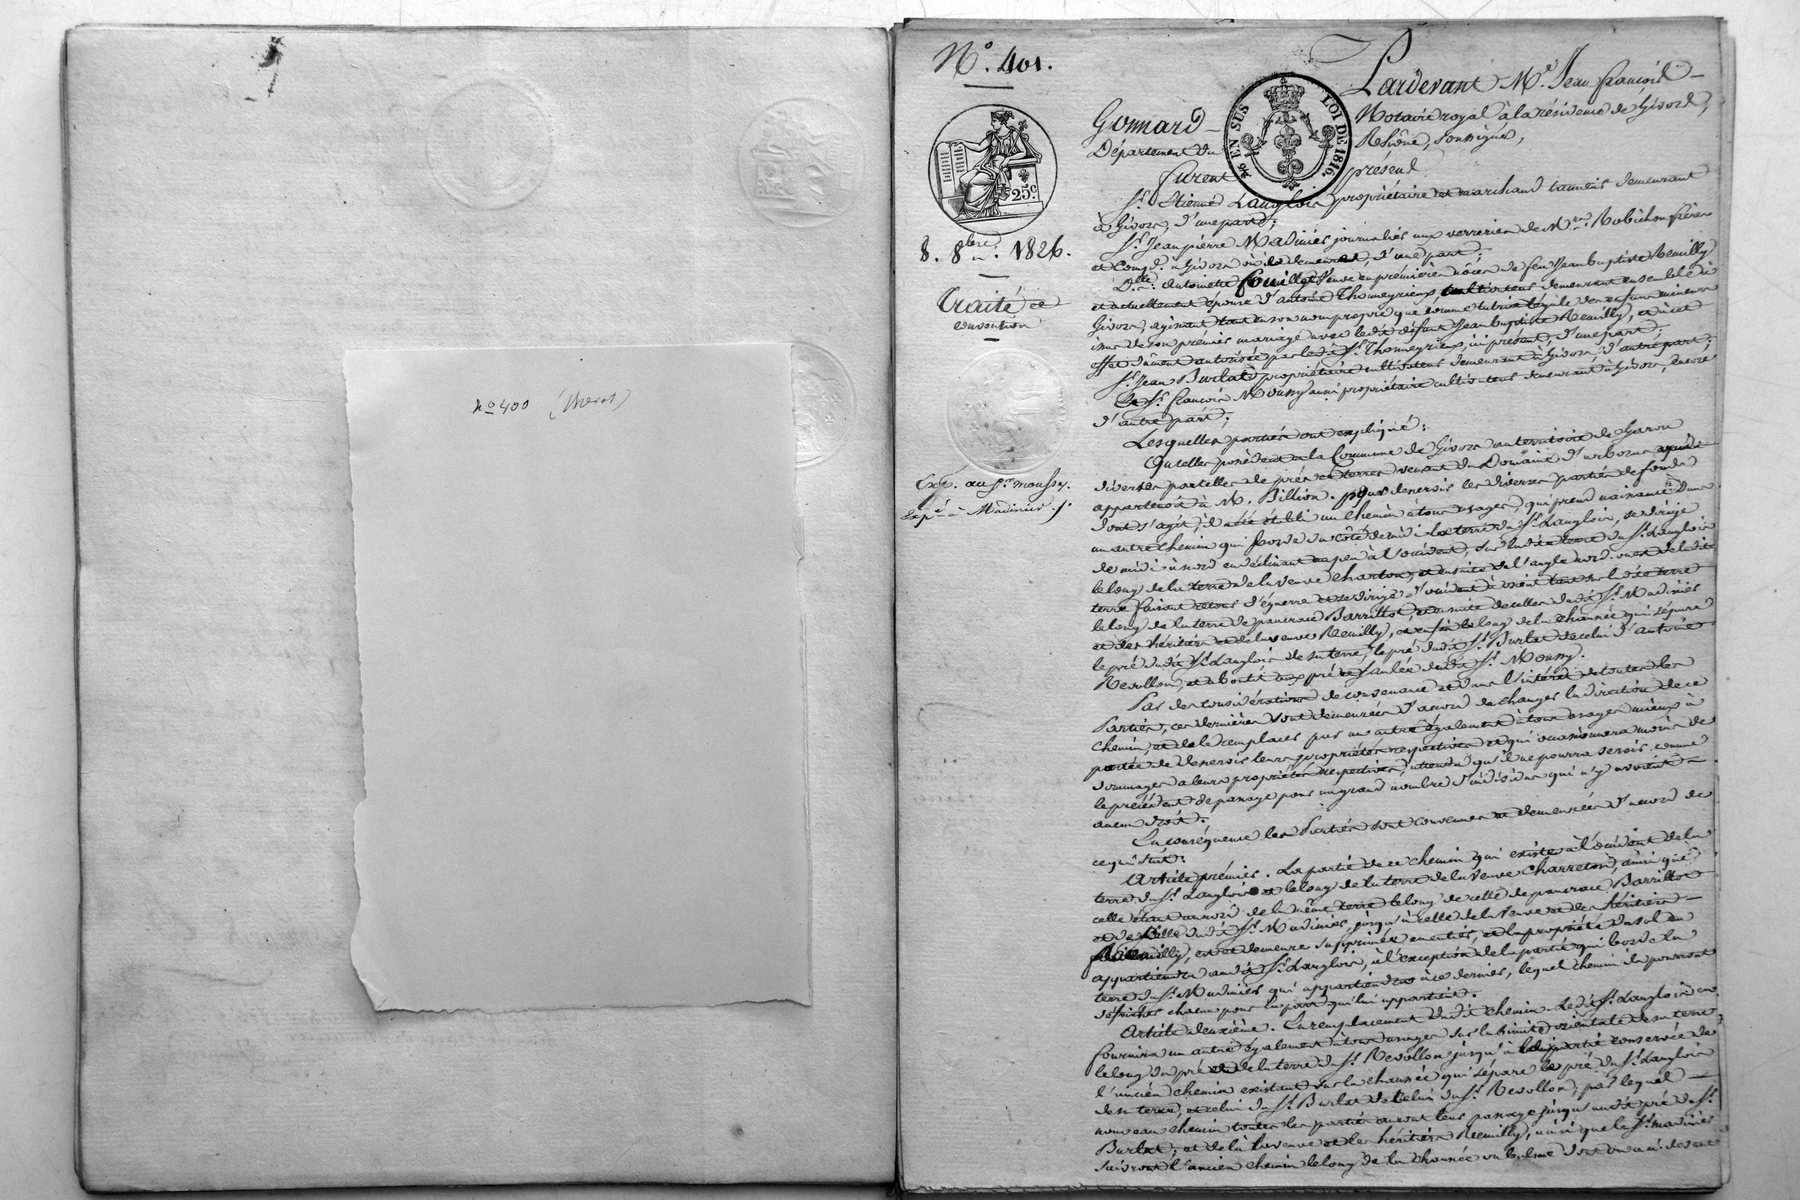 no 400 (Brevet)
N.o 401.
25.c
8. 8bre 1826.
Traité et
convention
Exp. au Sr. moussy.
Exp. à Madinier
EN SUS
LOI DE 1816.
Pardevant Me. Jean françois
Gonnard Notaire royal à la résidence de Givors,
Département du Rhône, soussigné,
furent présens
Sr. Etienne Langlois propriétaire et marchand taneur demeurant
à Givors, d'une part;
Sr. Jean pierre Madinier journalier aux verreries de Mrs. Robichon frères
et Compe. à Givors où il demeure, d'une part;
Dlle. Antoinette fouillet Veuve en première nôces de feu Jean baptiste Reuilly
et actuellement épouse d'antoine Thomeyrieux, cultivateur demeurant ensemble à
Givors, agissant tant en son nom propre que comme tutrice légale de ses enfans mineurs
issus de son premier mariage avec ledit défunt Jean baptiste Reuilly, et à cet
effet dûment autorisée par ledit Sr. Thomeyrieux, ici présent, d'une part;
Sr. Jean Burlat propriétaire cultivateur demeurant à Givors, d'autre part;
Sr. françois Moussy aussi propriétaire cultivateur demeurant à Givors, encore
d'autre part;
Lesquelles parties ont expliqué:
Qu'elles possèdent en la Commune de Givors au territoire de Garon
diverses parcelles de prés et terres venant du Domaine d'arboras ayant
appartenu à M. Billion. pour desservir les diverses parties de fonds
dont s'agit, il a été établi un chemin à tous usages, qui prend naissance dans
un autre chemin qui borde du côté de midi la terre du Sr. Langlois, se dirige
de midi à nord en déclinant un peu à l'occident, sur ladite terre du Sr. Langlois
le long de la terre de la veuve charton, et ensuite de l'angle nord ouest de ladite
terre faisant retour d'équerre et se dirige d'occident à orient tant sur la dite terre
le long de la terre de pancrace Barrillot, et ensuite de celles dudit Sr. Madinier
et des héritiers et de la veuve Reuilly, et enfin le long de la chaussée qui sépare
le pré dudit Sr. Langlois de sa terre, le pré dudit Sr. Burlat de celui d'antoine
Revollon, et aboutit aux pré et saulée dudit Sr. Moussy.
Par des considérations de convenance et dans l'intérêt de toutes les
Parties, ces dernières sont demeurées d'accord de changer la direction de ce
chemin, et de le remplacer par un autre également à tous usages mieux à
portée de desservir leurs propriétés respectives et qui occasionnera moins de
dommages à leurs propriétés respectives, attendu qu'il ne pourra servir comme
le précédent de passage pour un grand nombre d'individus qui n'y avaient
aucun droit.
En conséquence les Parties sont convenues et demeurées d'accord de
ce qui suit:
Article premier. La partie de ce chemin qui existe à l'occident de la
terre du Sr. Langlois et le long de la terre de la Veuve Charreton, ainsi que
celle étant au nord de la même terre le long de celle de pancrace Barrillot
et de celle dudit Sr. Madinier, jusqu'à celle de la Veuve et des héritiers
Reuilly, est et demeure supprimée en entier, et la propriété du sol en
appartiendra audit Sr. Langlois, à l'exception de la partie qui borde la
terre du Sr. Madinier qui appartiendra à ce dernier, lequel chemin ils pourront
défricher chacun pour la part qui lui appartient.
Article deuxième. En remplacement dudit chemin ledit Sr. Langlois en
fournira un autre également à tous usages sur la limite orientale de sa terre
le long du pré et de la terre du Sr. Revollon jusqu'à la partie conservée de
l'ancien chemin existant sur la chaussée qui sépare le pré du Sr. Langlois
de sa terre, et celui du Sr. Burlat de celui du Sr. Revollon, par lequel
nouveau chemin toutes les parties auront leur passage jusqu'audit pré du Sr.
Burlat, et de là la veuve et les héritiers Reuilly, ainsi que le Sr. madinier
suivront l'ancien chemin le long de la chaussée